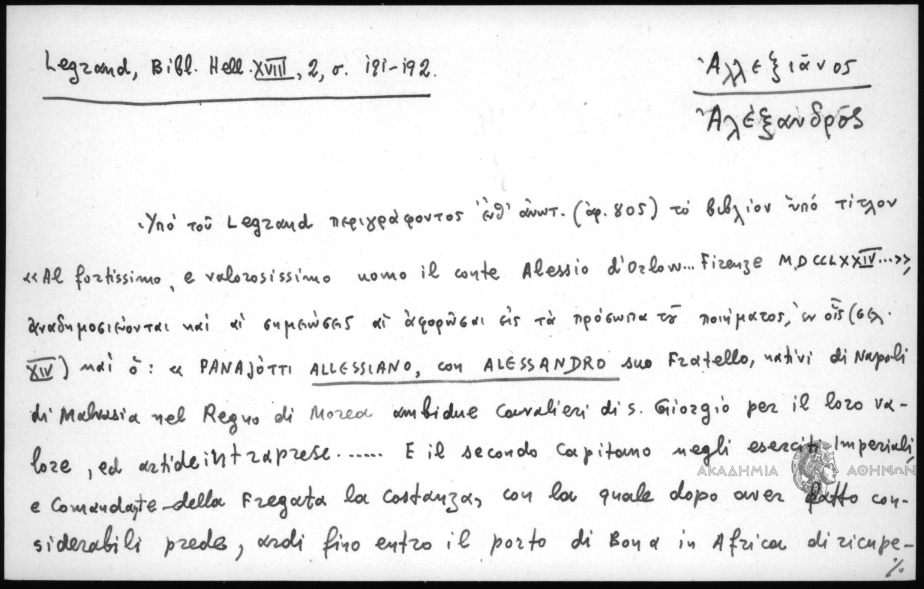 Legrand, Bibl. Hell. XVIII, 2, σ. 191-192.
Ἀλλεξιᾶνος
Ἀλέξανδρος
Ὑπό τοῦ Legrand περιγράφοντος ἐνθ' ἀνωτ. (ἀρ. 805) τό βιβλίον ὑπό τίτλον
«Al fortissimo, e valorosissimo uomo il conte Alessio d'Orlow... Firenze MDCCLXXIV...»,
ἀναδημοσιεύονται καί αἱ σημειώσεις αἱ ἀφορῶσαι εἰς τά πρόσωπα τοῦ ποιήματος, ἐν οἷς (σελ.
XIV) καί ὁ: « PANAJÒTTI ALLESSIANO, con ALESSANDRO suo Fratello, nativi di Napoli
di Malvasia nel Regno di Morea ambidue Cavalieri di S. Giorgio per il loro va-
lore, ed ardide intraprese...... E il secondo Capitano negli eserciti Imperiali,
e Comandante della Fregata la Costanza, con la quale dopo aver fatto con-
siderabili prede, ardi fino entro il porto di Bona in Africa di ricupe-
./.
ΑΚΑΔΗΜΙΑ ΑΘΗΝΩΝ